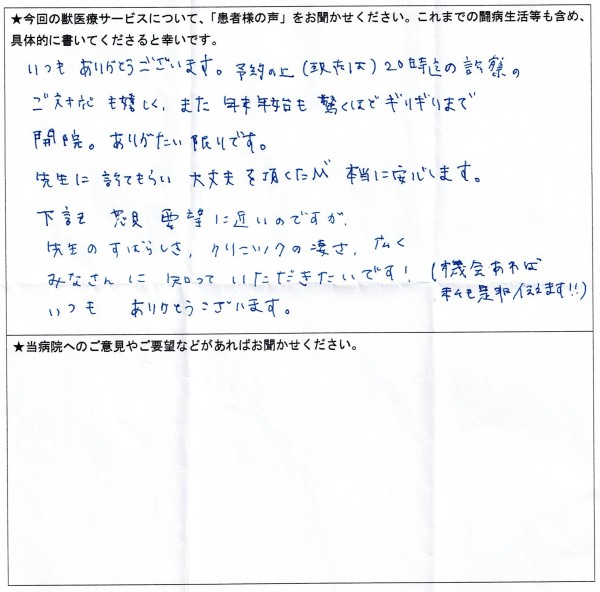 ★今回の獣医療サービスについて、「患者様の声」をお聞かせください。これまでの闘病生活等も含め、
具体的に書いてくださると幸いです。
いつも ありがとうございます。予約の上（現在は）20時迄の診察の
ご対応も嬉しく、また 年末年始も 驚くほどギリギリまで
開院。ありがたい限りです。
先生に 診てもらい 大丈夫 を頂くたび 本当に安心します。
下記 意見 要望に近いのですが、
先生のすばらしさ、クリニックの凄さ、広く
みなさんに 知って いただきたいです！（機会あれば
私も是非伝えます!!）
いつも ありがとうございます。
★当病院へのご意見やご要望などがあればお聞かせください。